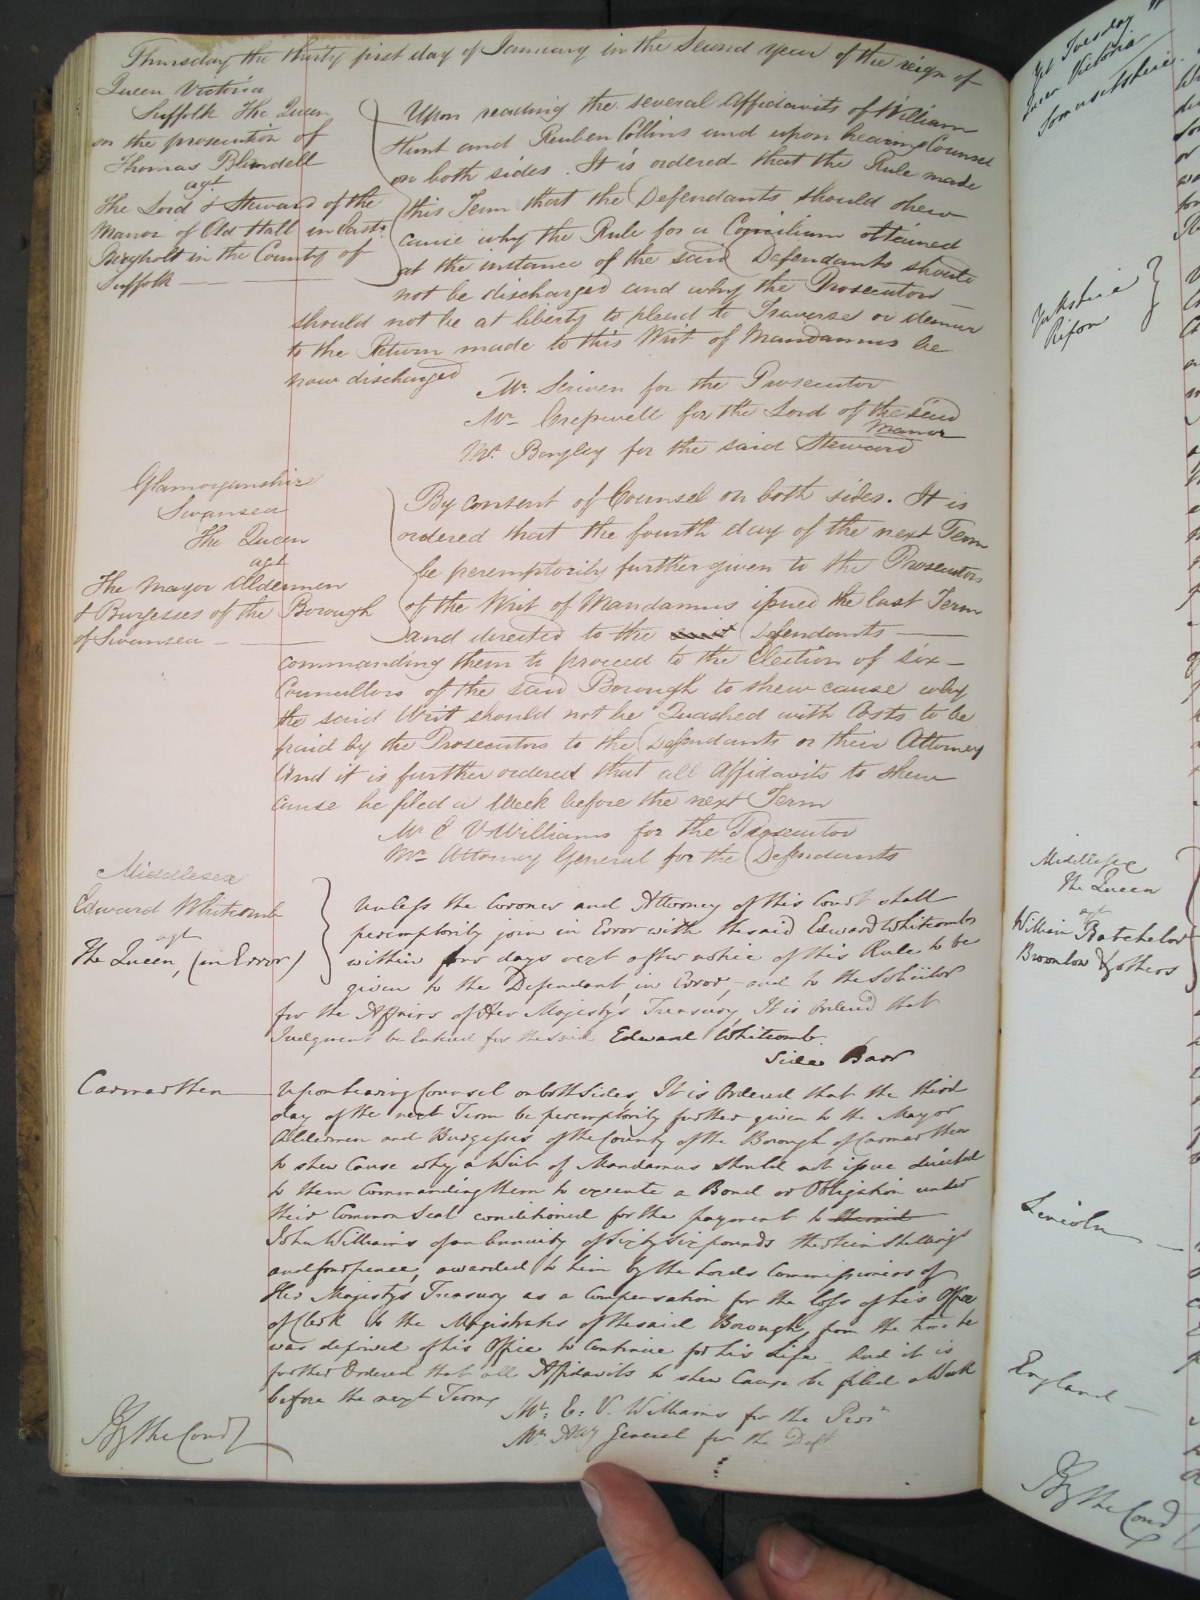 Thursday the thirty first day of January in the Second year of the reign of
Queen Victoria
Suffolk The Queen
on the prosecution of
Thomas Blundell
agt
The Lord & Steward of the
Manor of Old Hall in East
Bergholt in the County of
Suffolk
Upon reading the several Affidavits of William
Hunt and Reuben Collins and upon hearing Counsel
on both sides. It is ordered that the Rule made
this Term that the Defendants should shew
cause why the Rule for a Concilium obtained
at the instance of the said Defendants should
not be discharged and why the Prosecutor
should not be at liberty to plead to Traverse or demur
to the Return made to this Writ of Mandamus be
now discharged
Mr. Scriven for the Prosecutor
Mr for the Lord of the said
Manor
Mr. for the said Steward
Glamorganshire
Swansea
The Queen
agt
The Mayor Aldermen
& Burgesses of the Borough
of Swansea
By consent of Counsel on both sides. It is
ordered that the fourth day of the next Term
be peremptorily further given to the Prosecutors
of the Writ of Mandamus issued the last Term
and directed to the said Defendants
commanding them to proceed to the Election of six
Councillors of the said Borough to shew cause why
the said Writ should not be Quashed with Costs to be
paid by the Prosecutors to the Defendants or their Attorney
And it is further ordered that all Affidavits to shew
cause be filed a Week before the next Term
Mr E V Williams for the Prosecutor
Mr Attorney General for the Defendants
Middlesex
Edward Whitcomb
agt
The Queen, (in Error)
Unless the Coroner and Attorney of this Court shall
peremptorily join in Error with the said Edward Whitcomb
within four days next after notice of this Rule to be
given to the Defendant, in Error, and to the Solicitor
for the Affairs of Her Majesty's Treasury, It is Ordered that
Judgment be Entered for the said Edward Whitcomb.
Side Bar
Carmarthen
Upon hearing Counsel on both sides, It is Ordered that the third
day of the next Term be peremptorily further given to the Mayor
Aldermen and Burgesses of the County of the Borough of Carmarthen
to shew Cause why a Writ of Mandamus should not issue directed
to them Commanding them to execute a Bond or Obligation under
their Common Seal conditioned for the payment to the said
John Williams of an Annuity of Sixty six pounds thirteen Shillings
and fourpence, awarded to him by the Lords Commissioners of
Her Majesty's Treasury as a Compensation for the loss of his Office
of Clerk to the Magistrates of the said Borough, from the time he
was deprived of his Office to Continue for his Life And it is
further Ordered that all Affidavits to shew Cause be filed a Week
before the next Term
Mr. E. V. Williams for the Pror
Mr Atty General for the Deft
By the Court
Yet Tuesday
Queen Victoria
Somersetshire
Yorkshire
Ripon
Middlesex
The Queen
agt
William Batchelor
Brownlow & others
Lincoln
England
By the Court